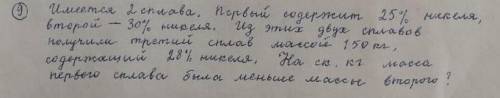 ⑨ Имеется 2 сплава. Первый содержит 25% никеля,
второй – 30% никеля. Из этих двух сплавов
получили третий сплав массой 150 кг,
содержащий 28% никеля. На ск. кг масса
первого сплава была меньше массы второго?